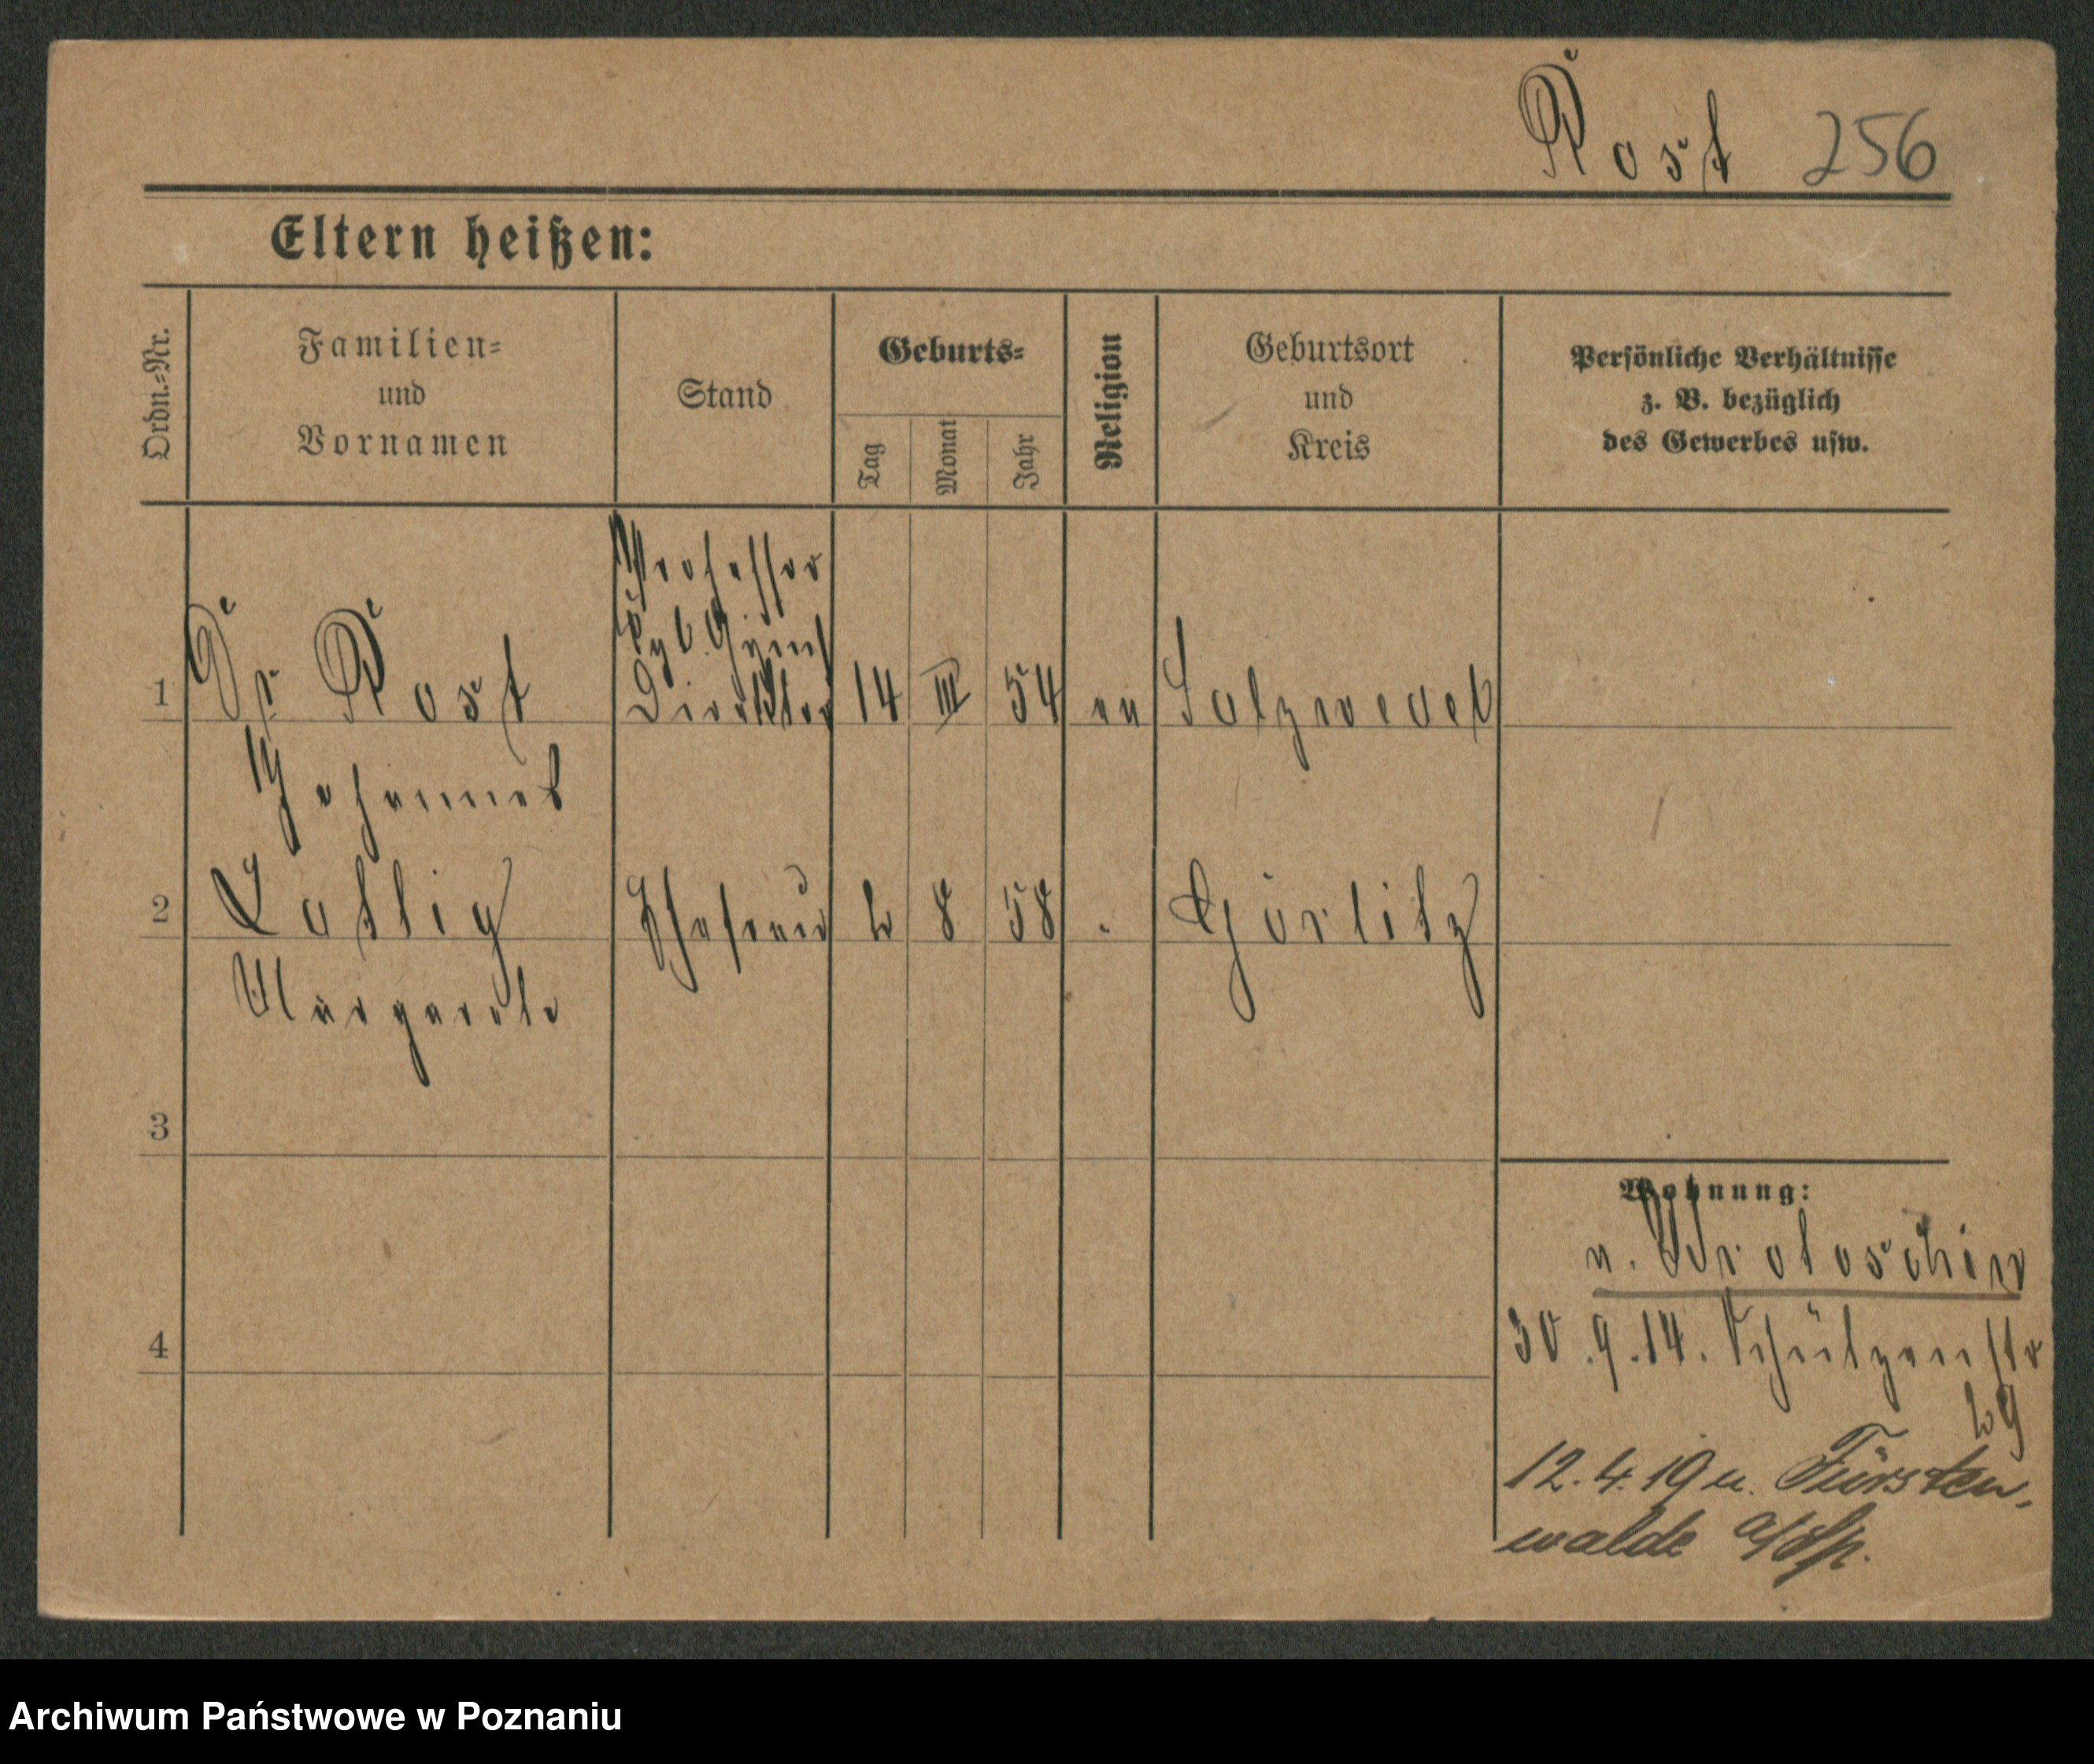 Rost 256
Eltern heißen:
Ordn.-Nr.
Familien-
und
Vornamen
Stand
Geburts-
Tag
Monat
Jahr
Religion
Geburtsort
und
Kreis
Persönliche Verhältnisse
z. B. bezüglich
des Gewerbes usw.
Professor
Kgl. Gymn
1 Dr Rost Direktor 14 III 54 ev Salzwedel
Johannes
2 Ehefrau 2 8 58 . Görlitz
Margarete
3
Wohnung:
v. Krotoschin
30.9.14. Schützenstr
29
4
12.4.19 n. Fürsten-
walde a/Sp.
Archiwum Państwowe w Poznaniu